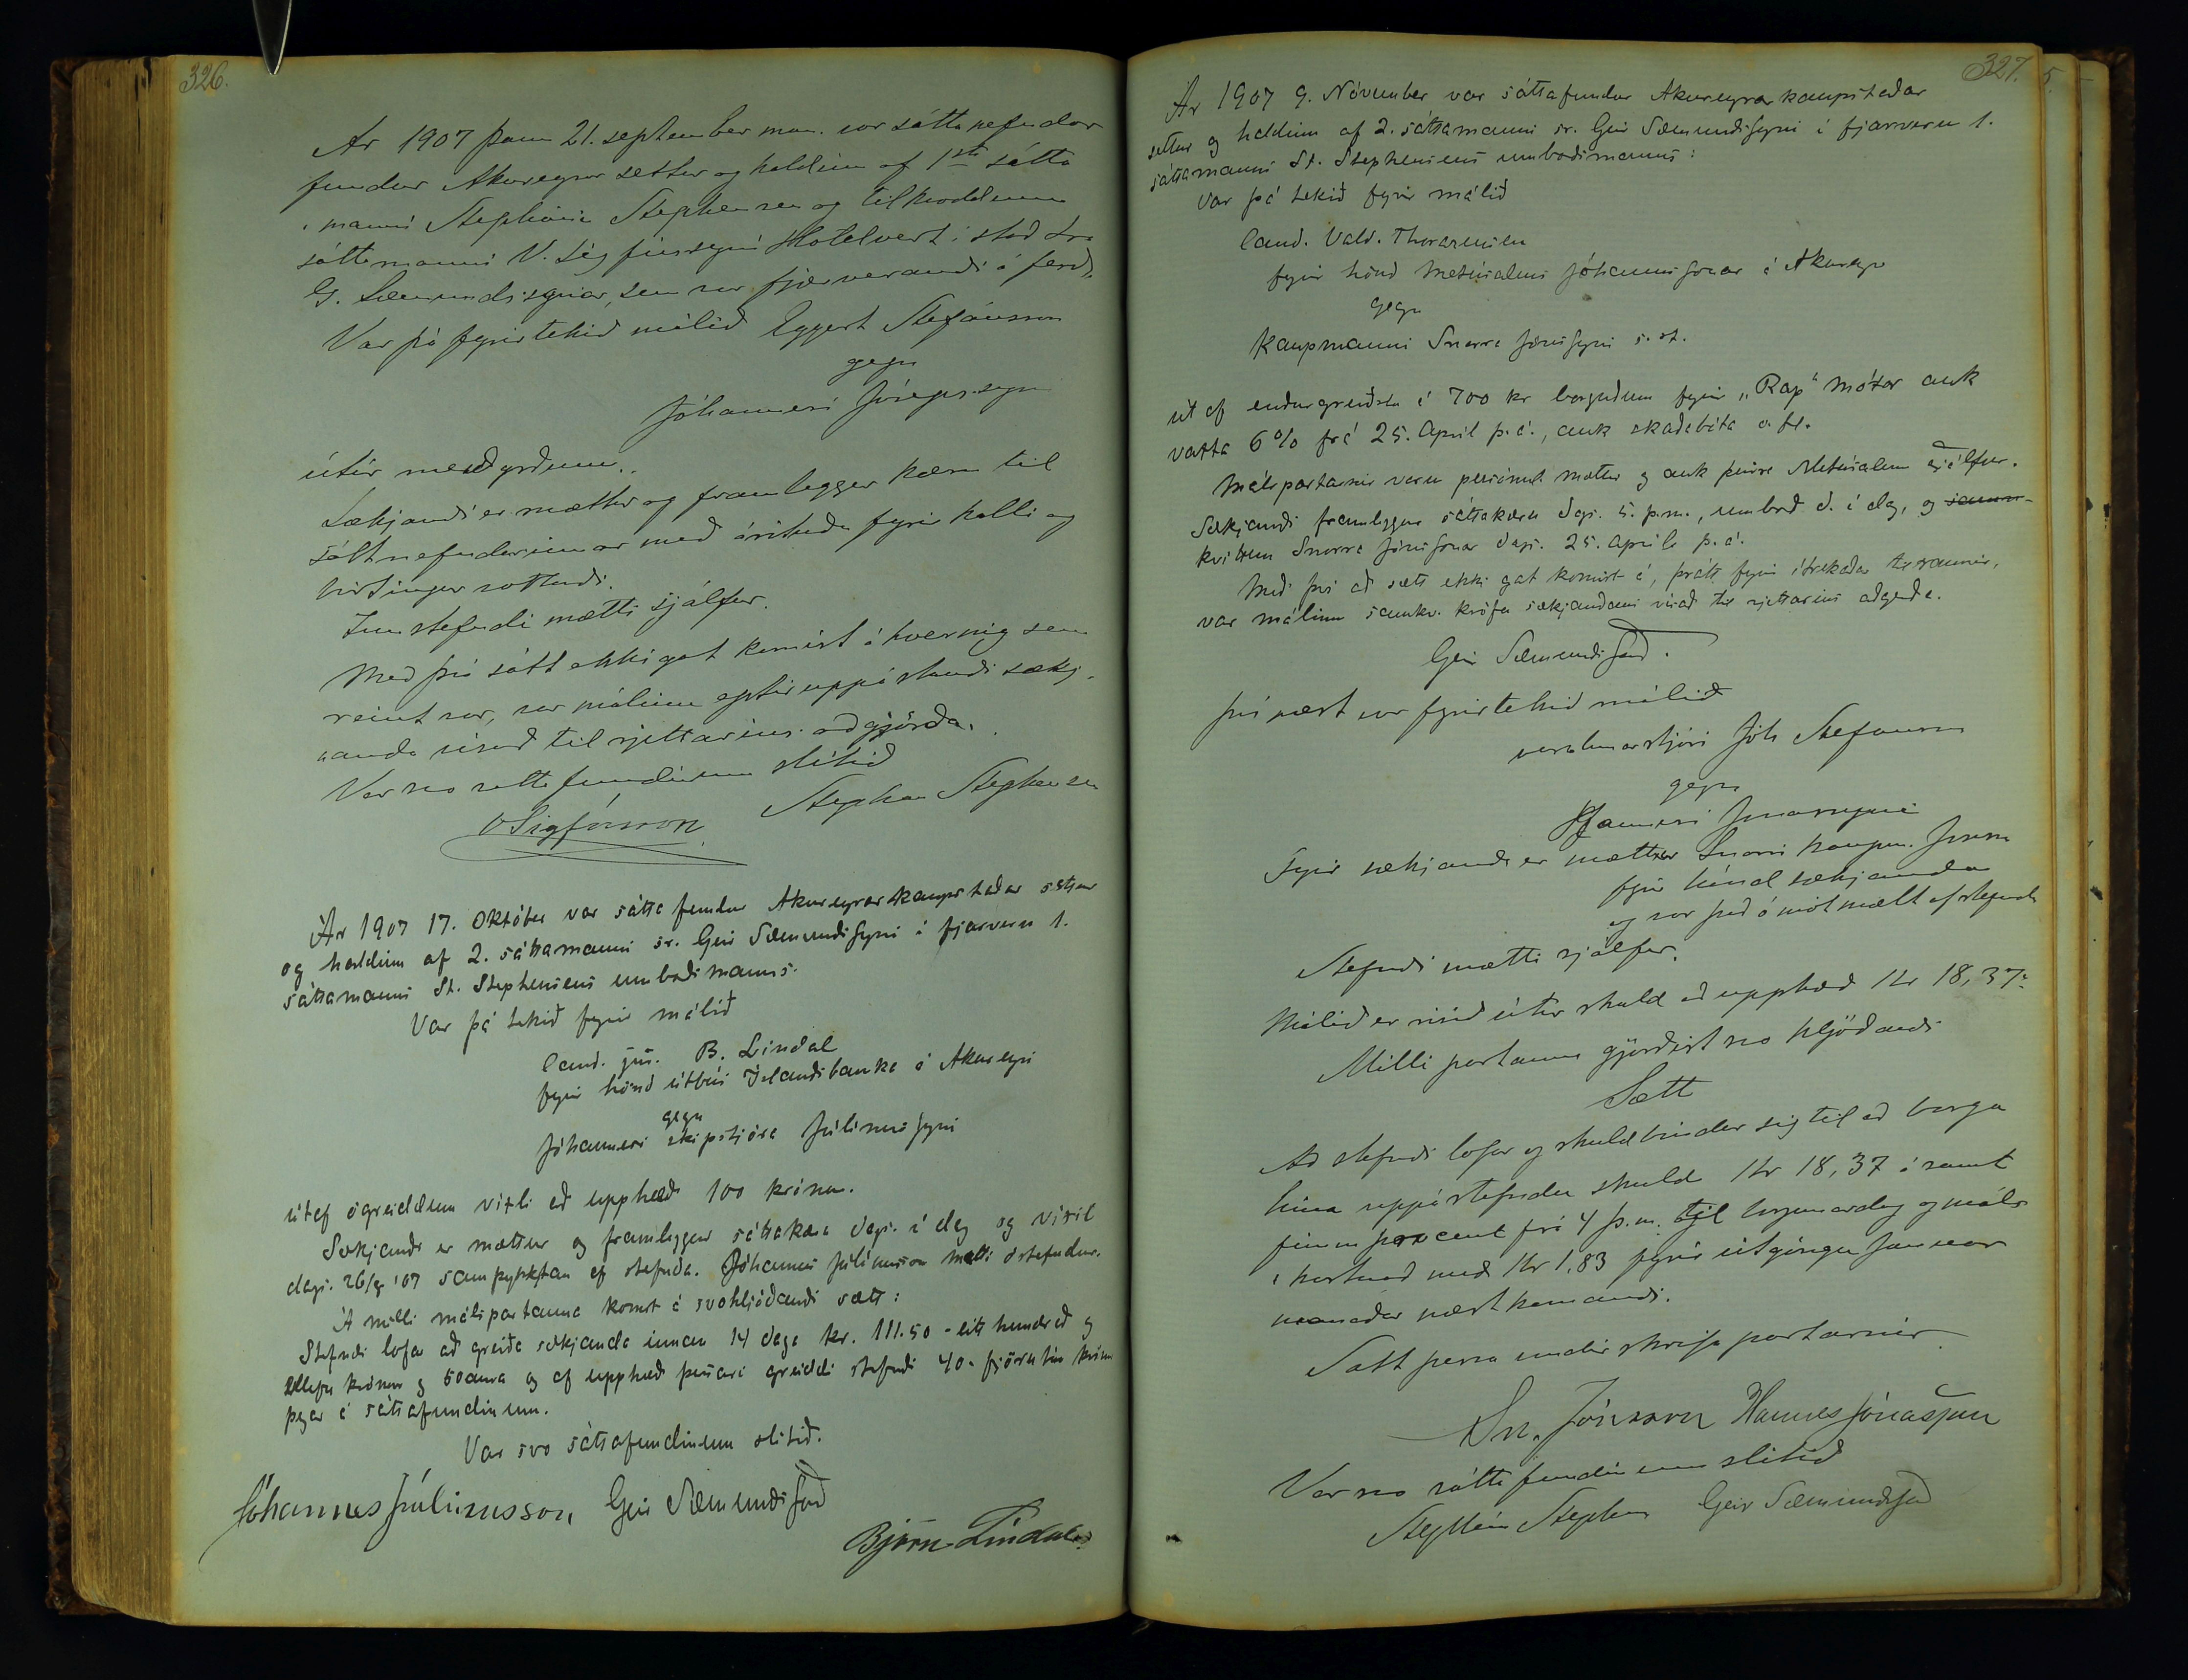 326.
Ar 1907 þann 21. september mán. var sáttanefndar
fundur Akureyrar settur og haldinn af 1sta sátta
manni Stephani Stephensen og tilkvöddum
sáttamanni V. Sigfússyni Hotelvert í stað sra
G. Sæmundssynar, sem var fjærverandi á ferð,
Var þá fyrirtekið málið Eggert Stefánsson
gegn
Jóhannesi Jósepssyni
útúr meiðyrðum.
Sækjandi er mættur og framleggur kæru til
sáttnefndarinnar með áritaðu fyrirkalli og
birtingar vottorði.
Innstefndi mætti sjálfur.
Með því sátt ekki gat komist á hvernig sem
reint var, var málinu eptir uppástandi sækj-
anda vísað til rjettarins aðgjörða.
Var svo sáttafundinum slitið
Stephan Stephensen
VSigfússon
Ár 1907 17. Október var sáttafundur Akureyrarkaupstaðar settur
og haldinn af 2. sáttamanni sr. Geir Sæmundssyni í fjarveru 1.
sáttamanns St. Stephensens umboðsmanns.
Var þá tekið fyrir málið
Cand. jur. B. Líndal
fyrir hönd útbús Íslandsbanka á Akureyri
gegn
Jóhannesi skipstjóra Júlínussyni
útaf ógreiddum víxli að upphæð 100 krónur.
Sækjandi er mættur og framleggur sáttakæru dags. í dag og víxil
dags. 26/7 '07 samþykktan af stefnda. Jóhannes Júlínusson mætti óstefndur.
Á milli málspartanna komst á svohljóðandi sætt:
Stefndi lofar að greiða sækjanda innan 14 daga kr. 111.50 - eitt hundrað og
ellefu krónur og 50 aura og af upphæð þessari greiddi stefndi 40 - fjörutíu krónur
þegar á sáttafundinum.
Var svo sáttafundinum slitið.
Jóhannes Júlínusson Geir Sæmundsson
Björn Líndal
327.
5
Ár 1907 9. Nóvember var sáttafundur Akureyrarkaupstaðar
settur og haldinn af 2. sáttamanni sr. Geir Sæmundssyni í fjarveru 1.
sáttamanns St. Stephensens umboðsmanns:
Var þá tekið fyrir málið
Cand. Vald. Thorarensen
fyrir hönd Metúsalems Jóhannssonar á Akureyri
gegn
Kaupmanni Snorra Jónssyni s. st.
út af endurgreiðslu á 700 kr borguðum fyrir „Rap" mótor auk
vaxta 6% frá 25. Apríl þ. á., auk skaðabóta o. fl.
Málspartarnir voru persónul. mættir og auk þeirra Metúsalem sjálfur.
Sækjandi framleggur sáttakæru dags. 5. þ.m., umboð d. í dag, og samn-
kvittun Snorra Jónssonar dags. 25. Apríls þ.á.
Með því að sætt ekki gat komist á, þrátt fyrir ítrekaðar tilraunir,
var málinu samkv. kröfu sækjandans vísað til rjettarins aðgerða.
Geir Sæmundsson.
Því næst var fyrirtekið málið
verslunarstjóri Jóh Stefansson
gegn
Hannesi Jónassyni
Fyrir sækjanda er mættur Snorri kaupm. Jónsson
fyrir hönd sækjanda
og var því ómótmælt af stefnda
Stefndi mætti sjálfur.
Málið er risið útúr skuld að upphæð Kr 18,37.
Milli partanna gjörðist svo hljóðandi
Sætt
Að stefndi lofar og skuldbindur sig til að borga
hina uppástefndu skuld Kr 18,37 ásamt
fimm procent frá 4 þ.m. til borgunardag og máls
kostnað með Kr 1.83 fyrir útgöngu Januar
mánaðar næstkomandi.
Sátt þessa undirskrifa partarnir
Sn. Jónsson Hannes Jónasson
Var svo sáttafundinum slitið
Stephán Stephensen Geir Sæmundsson